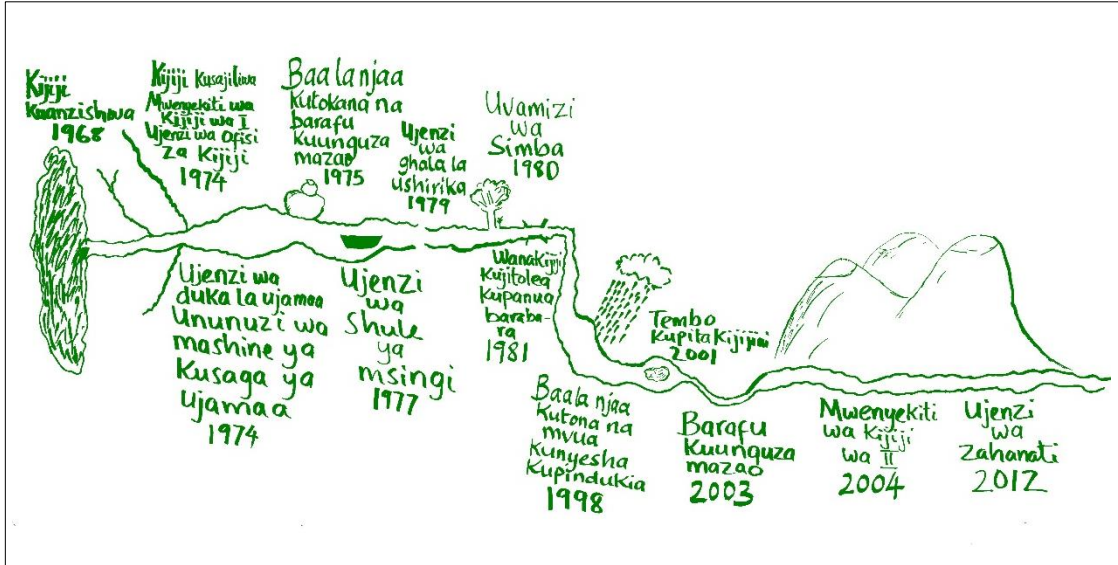 Kijiji
Kuanzishwa
1968
Kijiji Kusajiliwa
Mwenyekiti wa
Kijiji wa I
Ujenzi wa Ofisi
za Kijiji
1974
Baa la njaa
kutokana na
barafu
kuunguza
mazao
1975
Ujenzi
wa
ghala la
ushirika
1979
Uvamizi
wa
Simba
1980
Ujenzi wa
duka la ujamaa
Ununuzi wa
mashine ya
Kusaga ya
ujamaa
1974
Ujenzi
wa
Shule
ya
msingi
1977
Wanakijiji
Kujitolea
Kupanua
baraba-
ra
1981
Baa la njaa
Kutona na
mvua
Kunyesha
Kupindukia
1998
Tembo
Kupita Kijijini
2001
Barafu
Kuunguza
mazao
2003
Mwenyekiti
wa Kijiji
wa II
2004
Ujenzi
wa
Zahanati
2012